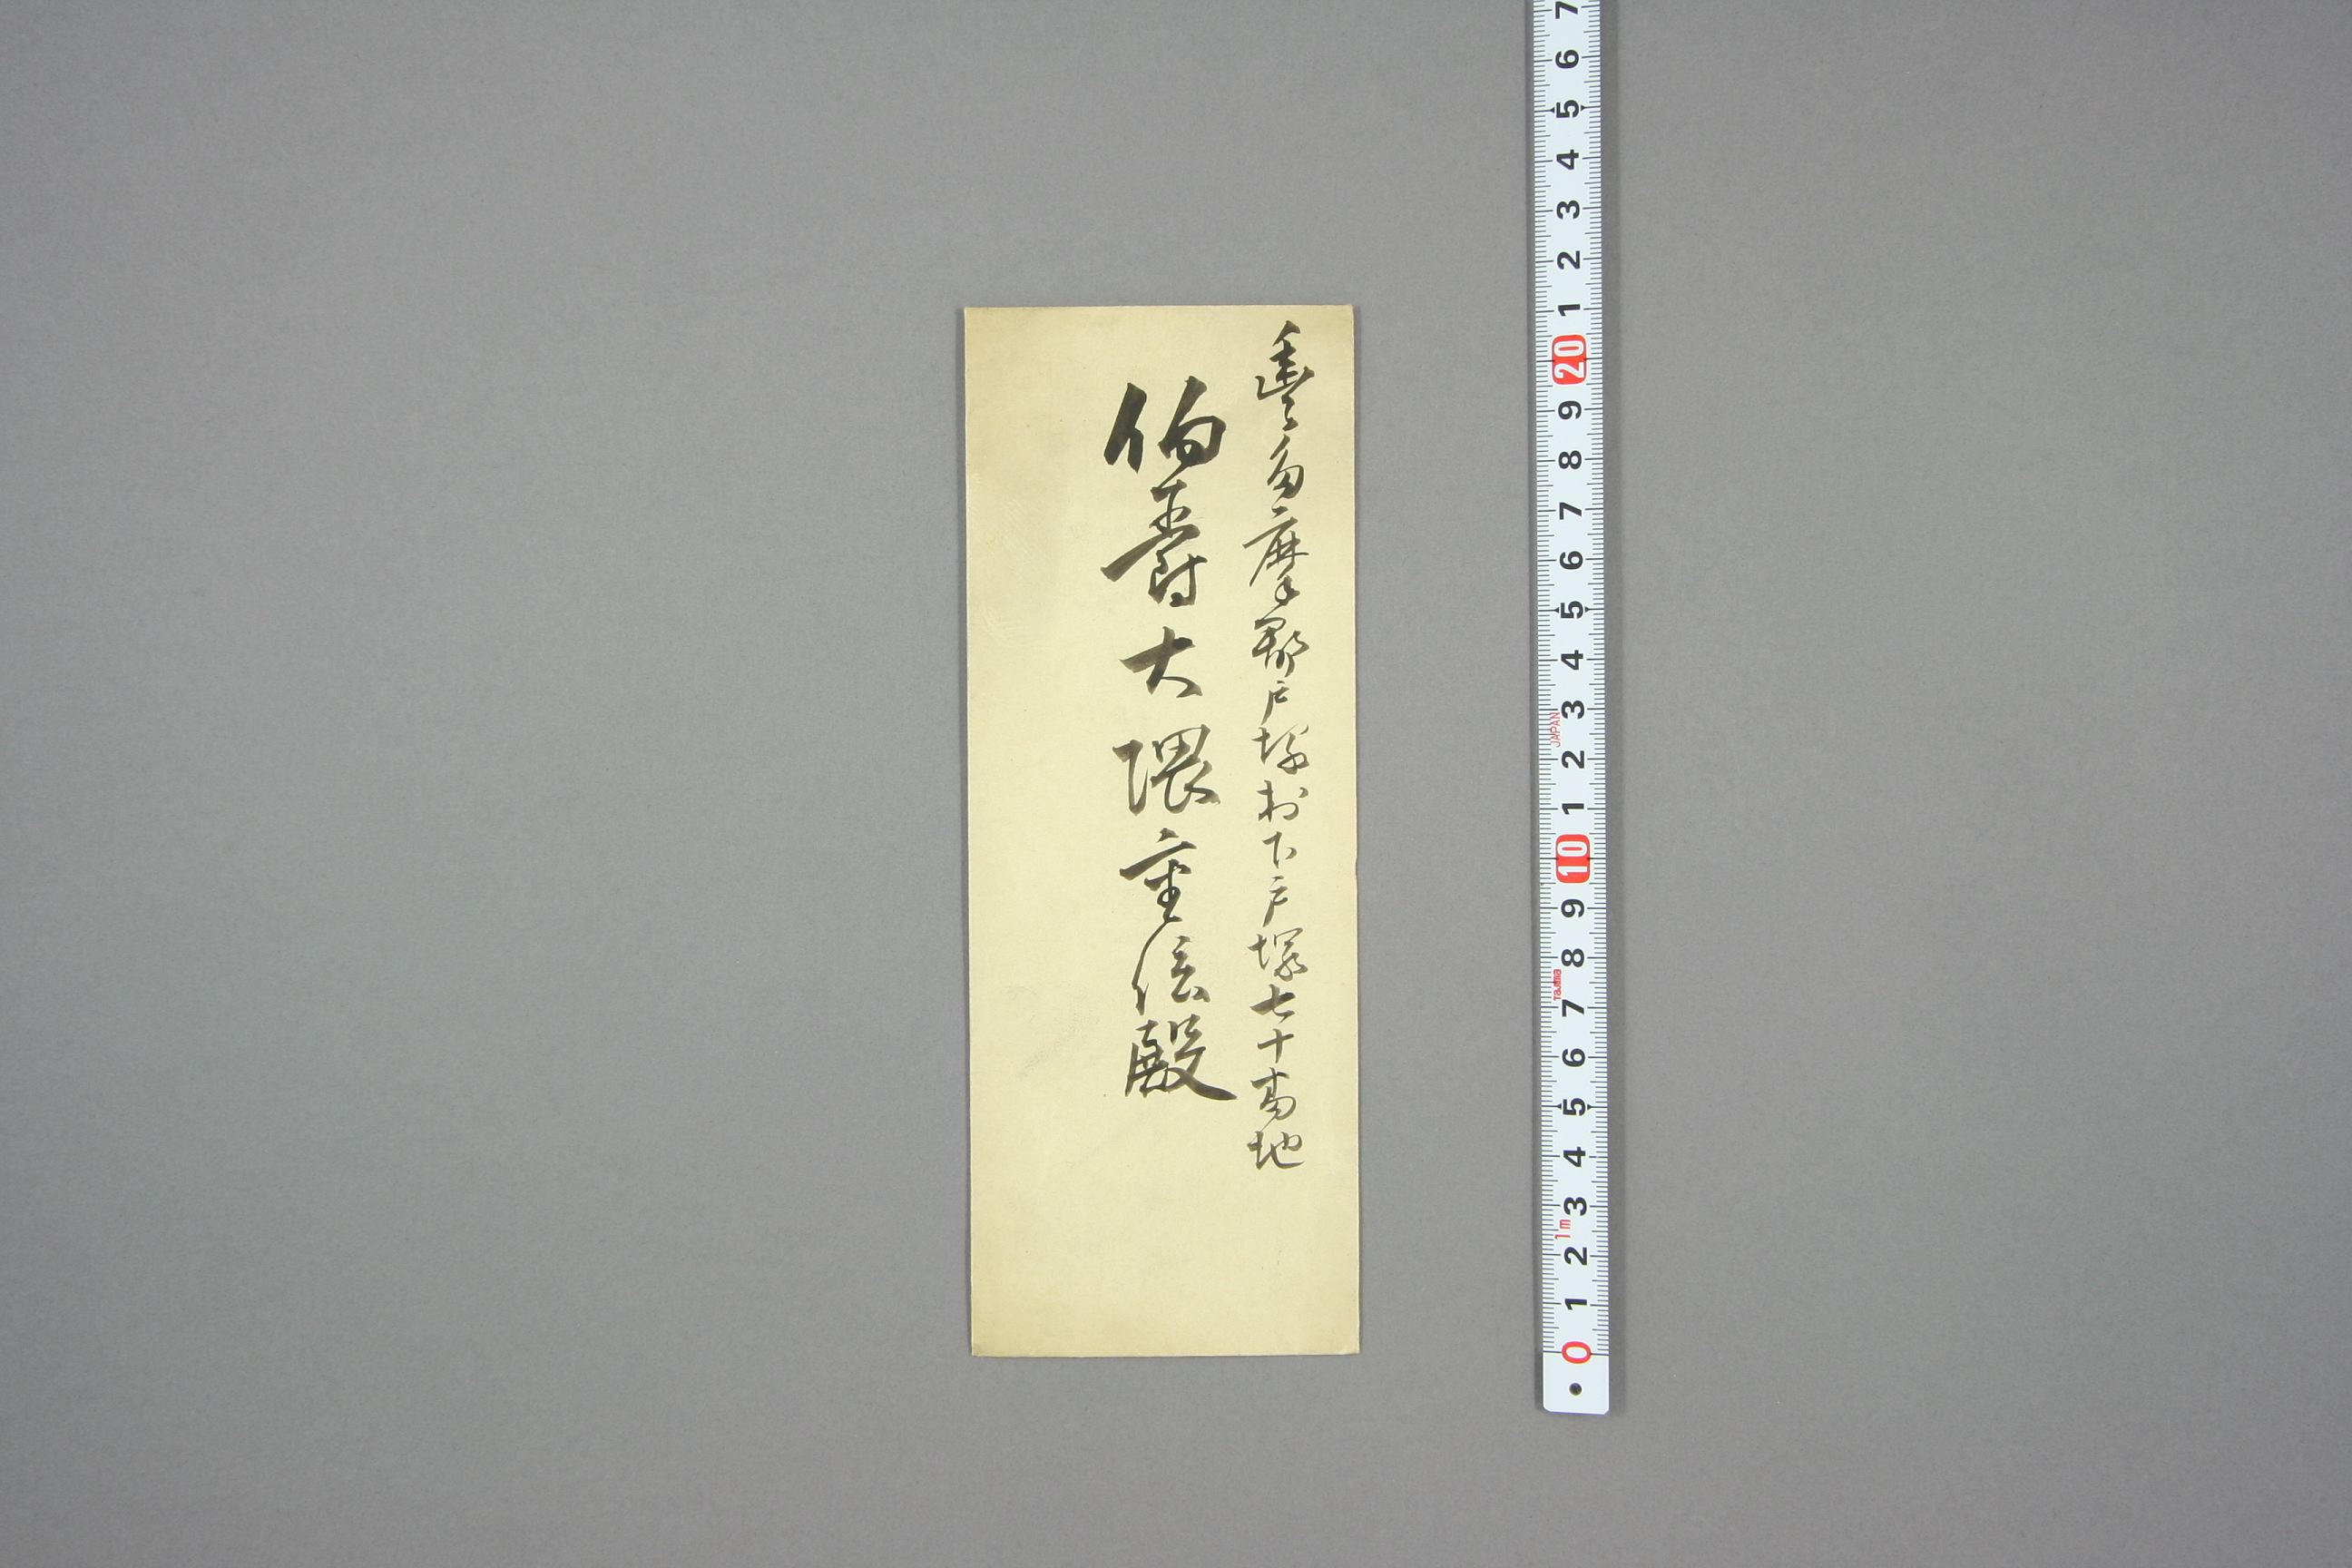 豊多摩郡戸塚村下戸塚七十番地
伯爵大隈重信殿
7 6 5 4 3 2 1 20 9 8 7 6 5 4 3 2 1 10 9 8 7 6 5 4 3 2 1 0
JAPAN
TAJIMA
1m